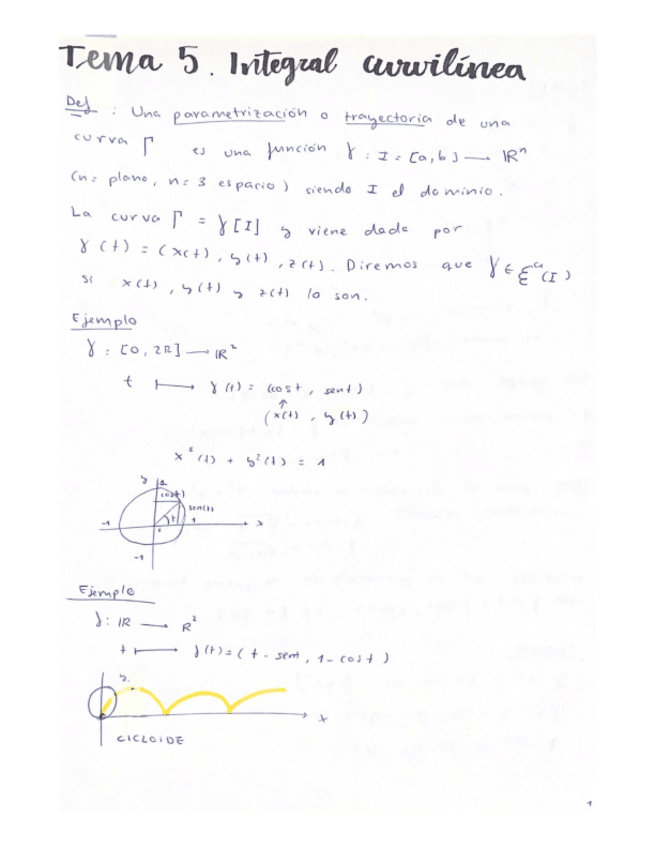 Tema 5. Integral curvilínea
Def : Una parametrización o trayectoria de una
curva Γ es una función γ : I = [a,b] → ℝⁿ
(n= plano, n= 3 espacio) siendo I el dominio.
La curva Γ = γ[I] y viene dada por
γ(t) = (x(t), y(t), z(t)). Diremos que γ ∈ (I)
si x(t), y(t) y z(t) lo son.
Ejemplo
γ : [0, 2π] → ℝ²
t ⟼ γ(t) = (cost, sent)
↑
(x(t), y(t))
x²(t) + y²(t) = 1
y 1
cos(t)
sen(t)
-1 t 1 x
-1
Ejemplo
γ: ℝ → ℝ²
t ⟼ γ(t) = (t - sent, 1 - cost)
y
x
CICLOIDE
1